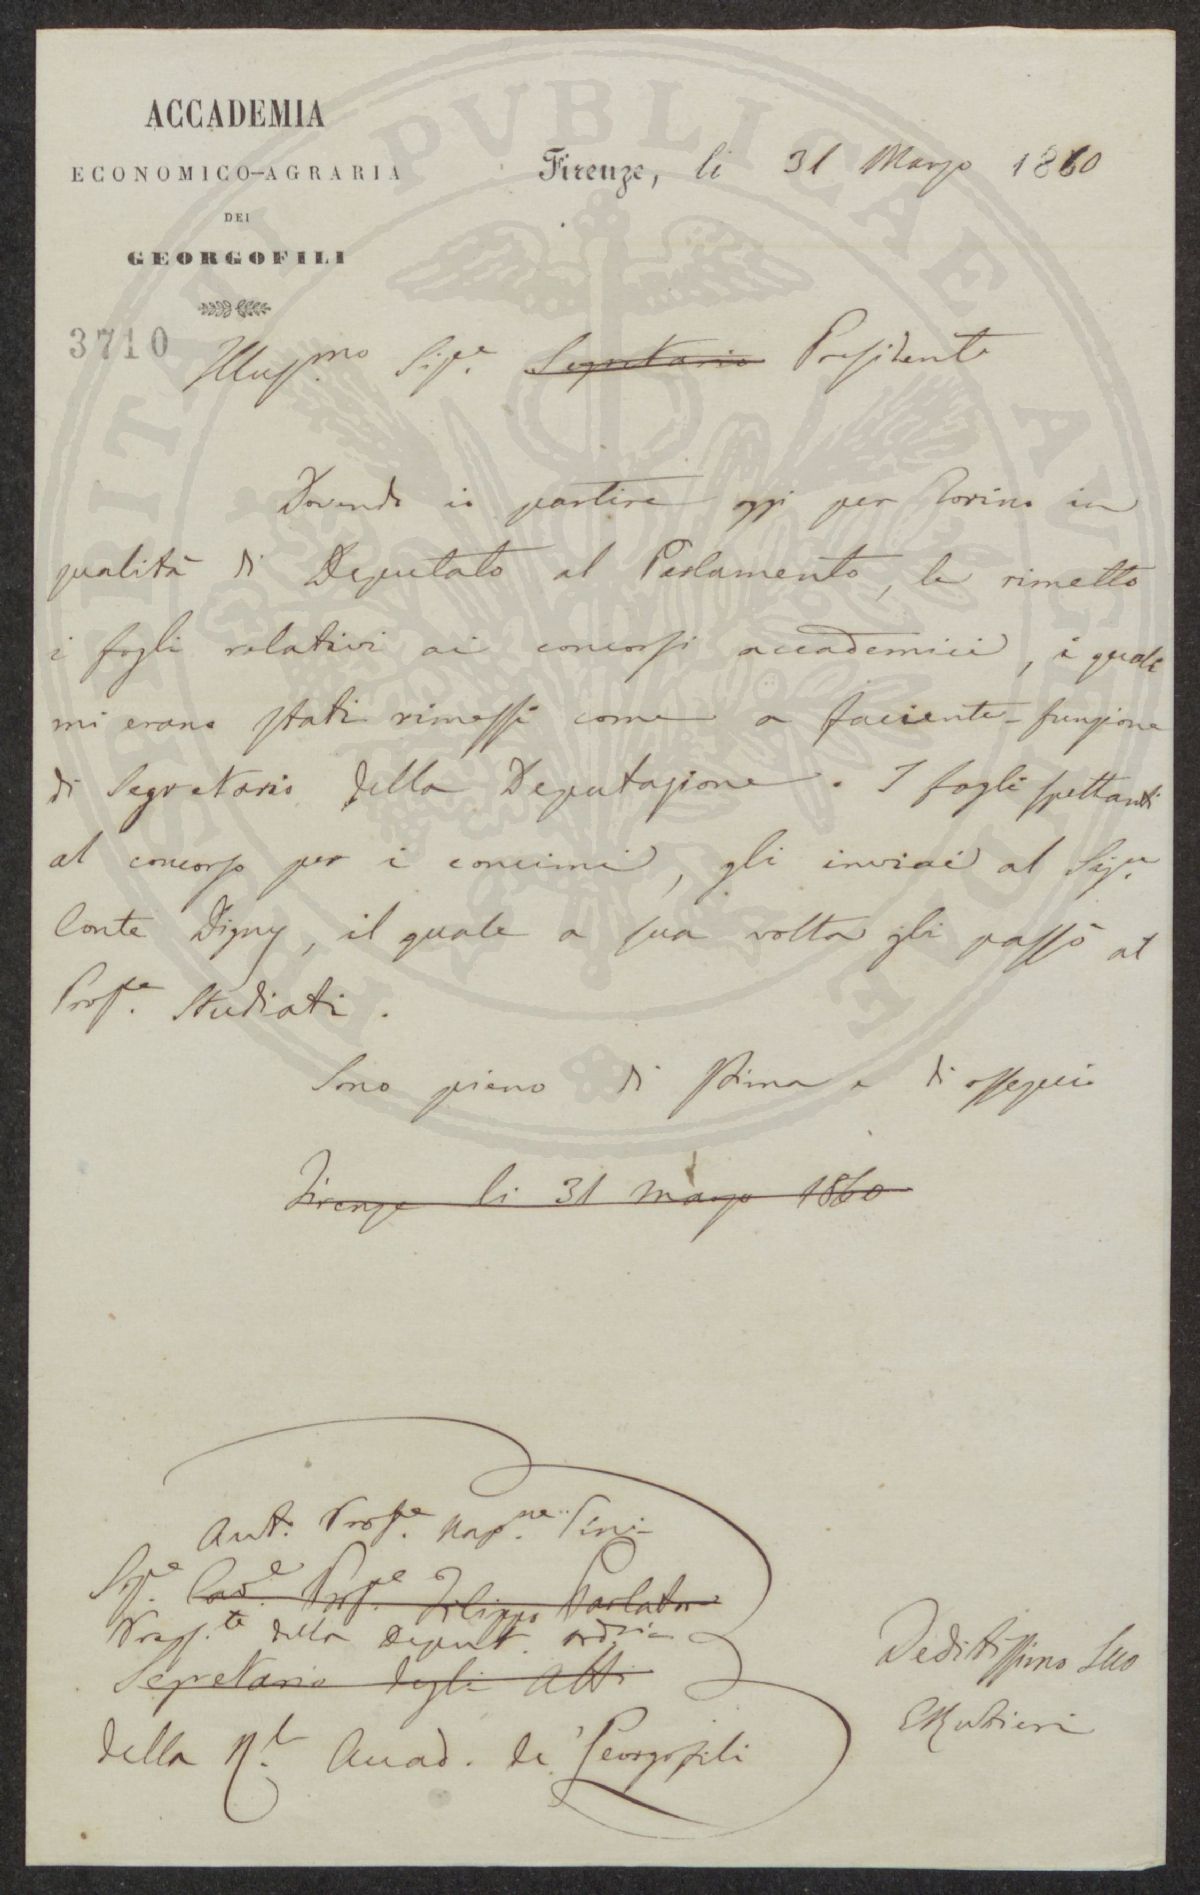 ACCADEMIA
ECONOMICO-AGRARIA
DEI
GEORGOFILI
Firenze, li 31 Marzo 1860
3710
Illus.mo Sig.e Segretario Presidente
Dovendo io partire oggi per Torino in
qualità di Deputato al Parlamento, le rimetto
i fogli relativi ai concorsi accademici, i quali
mi erano stati rimessi come a faciente-funzione
di Segretario della Deputazione. I fogli spettanti
al concorso per i concimi, gli inviai al Sig.e
Conte Digny, il quale a sua volta gli passò al
Prof.e Studiati.
Sono pieno di stima e di ossequio
Firenze li 31 marzo 1860
Prof.e Nap.ne Pini
Sig.e Cav.e Prof.e Filippo Parlatore
Pres.te della Deput. ord.ria
Segretario degli Atti
della R.l Accad. de' Georgofili
Deditissimo Suo
CRubieri
PROSPERITATI PUBLICAE AUGENDAE